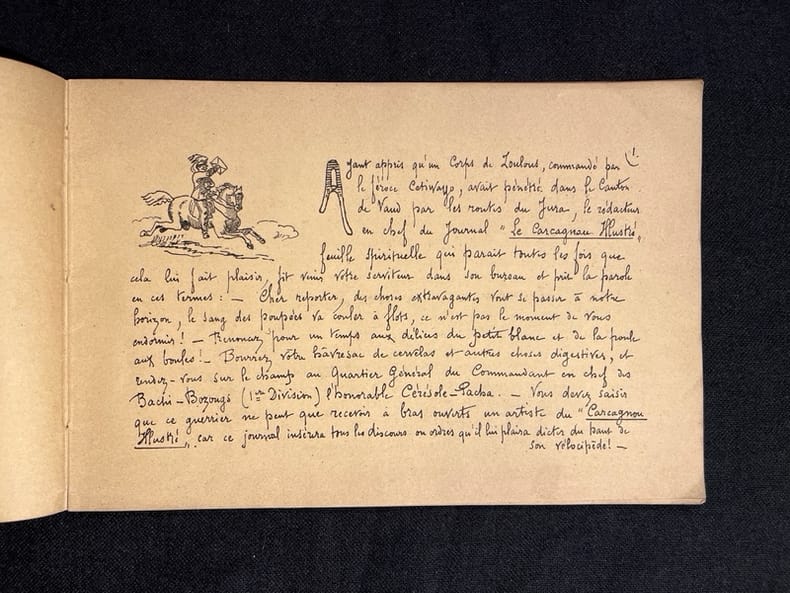 Ayant appris qu'un Corps de Zoulous, commandé par
le féroce Cetiwayo, avait pénétré dans le Canton
de Vaud par les routes du Jura, le rédacteur
en chef du Journal "Le Carcagnou Illustré"
feuille spirituelle qui parait toutes les fois que
cela lui fait plaisir, fit venir votre serviteur dans son bureau et prit la parole
en ces termes : — Cher reporter, des choses extravagantes vont se passer à notre
horizon, le sang des poupées va couler à flots, ce n'est pas le moment de vous
endormir ! — Renoncez pour un temps aux délices du petit blanc et de la poule
aux boules ! — Bourrez votre hâvresac de cervelas et autres choses digestives, et
rendez-vous sur le champ au Quartier Général du Commandant en chef des
Bachi-Bozougs (1ère Division) l'honorable Cérésole-Pacha. — Vous devez saisir
que ce guerrier ne peut que recevoir à bras ouverts un artiste du "Carcagnou
Illustré" car ce journal insèrera tous les discours ou ordres qu'il lui plaira dicter du haut de
son vélocipède ! —